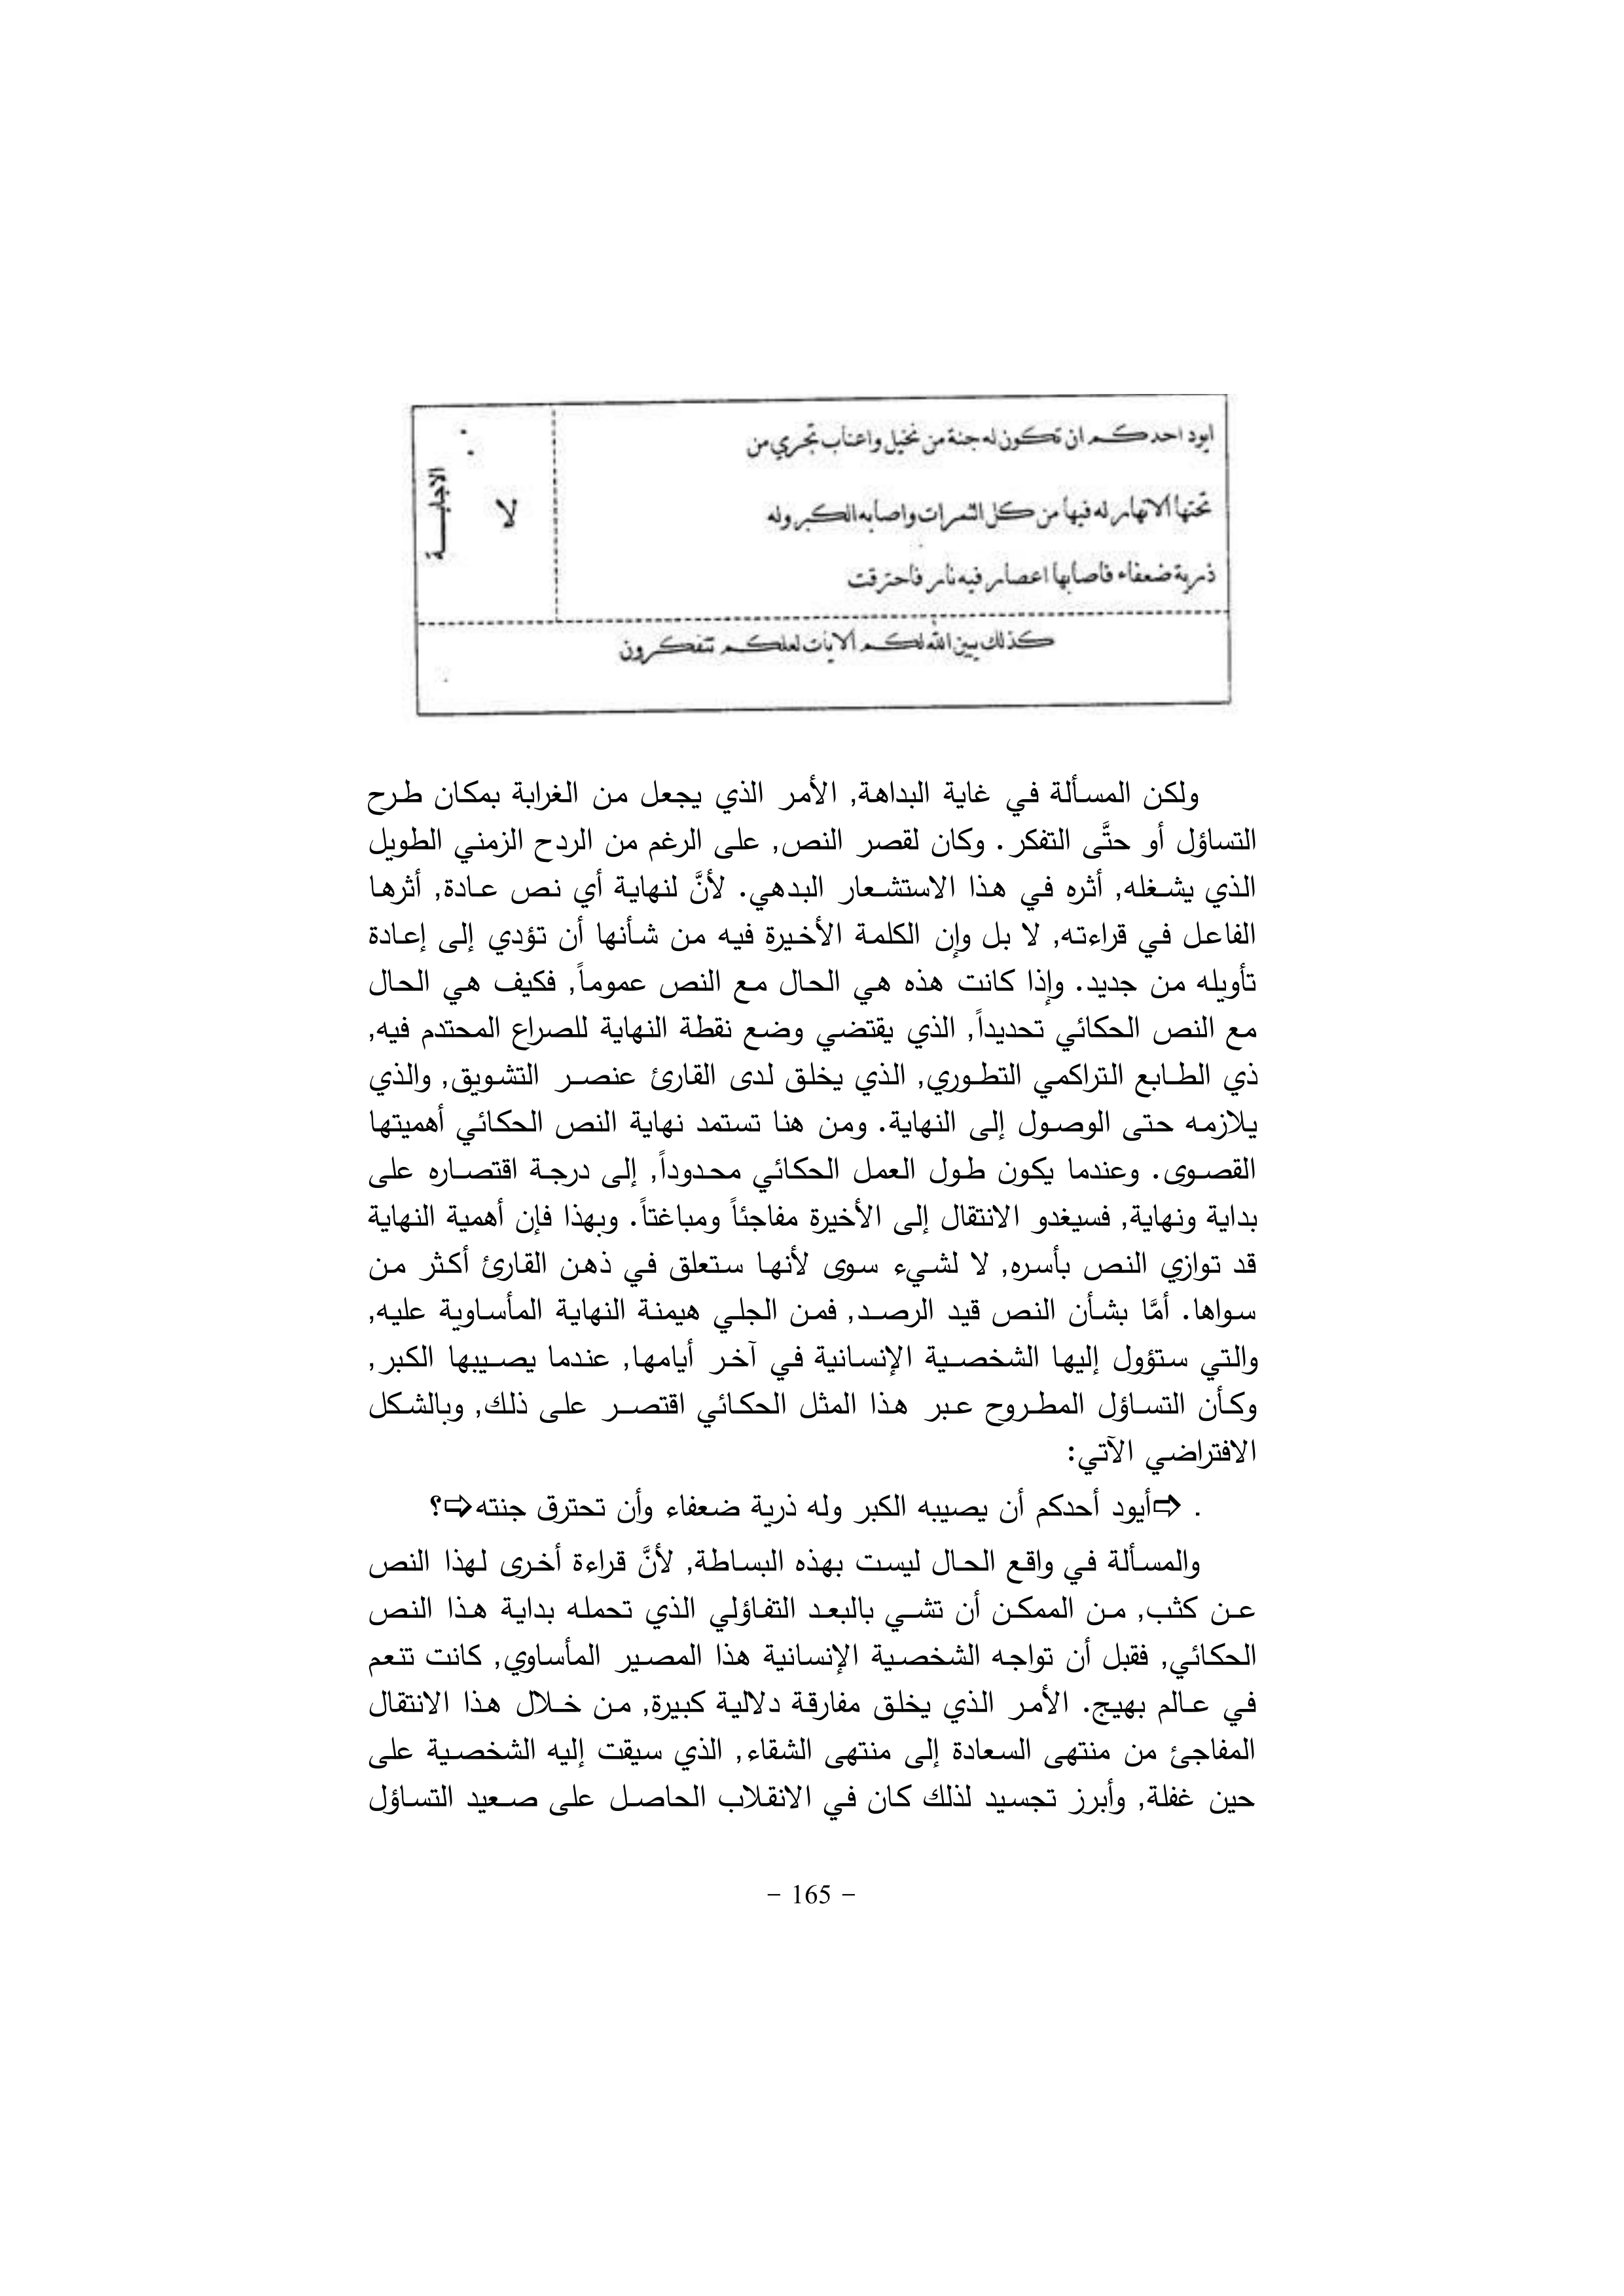 ايود احدكم ان تكون له جنة من نخيل واعناب تجري من
تحتها الانهار له فيها من كل الثمرات واصابه الكبر وله
ذرية ضعفاء فاصابها اعصار فيه نار فاحترقت
لا
الاجابة
كذلك يبين الله لكم الايات لعلكم تتفكرون
ولكن المسألة في غاية البداهة, الأمر الذي يجعل من الغرابة بمكان طرح
التساؤل أو حتَّى التفكر. وكان لقصر النص, على الرغم من الردح الزمني الطويل
الذي يشغله, أثره في هذا الاستشعار البدهي. لأنَّ لنهاية أي نص عادة, أثرها
الفاعل في قراءته, لا بل وإن الكلمة الأخيرة فيه من شأنها أن تؤدي إلى إعادة
تأويله من جديد. وإذا كانت هذه هي الحال مع النص عموماً, فكيف هي الحال
مع النص الحكائي تحديداً, الذي يقتضي وضع نقطة النهاية للصراع المحتدم فيه,
ذي الطابع التراكمي التطوري, الذي يخلق لدى القارئ عنصر التشويق, والذي
يلازمه حتى الوصول إلى النهاية. ومن هنا تستمد نهاية النص الحكائي أهميتها
القصوى. وعندما يكون طول العمل الحكائي محدوداً, إلى درجة اقتصاره على
بداية ونهاية, فسيغدو الانتقال إلى الأخيرة مفاجئاً ومباغتاً. وبهذا فإن أهمية النهاية
قد توازي النص بأسره, لا لشيء سوى لأنها ستعلق في ذهن القارئ أكثر من
سواها. أمَّا بشأن النص قيد الرصد, فمن الجلي هيمنة النهاية المأساوية عليه,
والتي ستؤول إليها الشخصية الإنسانية في آخر أيامها, عندما يصيبها الكبر,
وكأن التساؤل المطروح عبر هذا المثل الحكائي اقتصر على ذلك, وبالشكل
الافتراضي الآتي:
. ⇨أيود أحدكم أن يصيبه الكبر وله ذرية ضعفاء وأن تحترق جنته⇨؟
والمسألة في واقع الحال ليست بهذه البساطة, لأنَّ قراءة أخرى لهذا النص
عن كثب, من الممكن أن تشي بالبعد التفاؤلي الذي تحمله بداية هذا النص
الحكائي, فقبل أن تواجه الشخصية الإنسانية هذا المصير المأساوي, كانت تنعم
في عالم بهيج. الأمر الذي يخلق مفارقة دلالية كبيرة, من خلال هذا الانتقال
المفاجئ من منتهى السعادة إلى منتهى الشقاء, الذي سيقت إليه الشخصية على
حين غفلة, وأبرز تجسيد لذلك كان في الانقلاب الحاصل على صعيد التساؤل
- 165 -